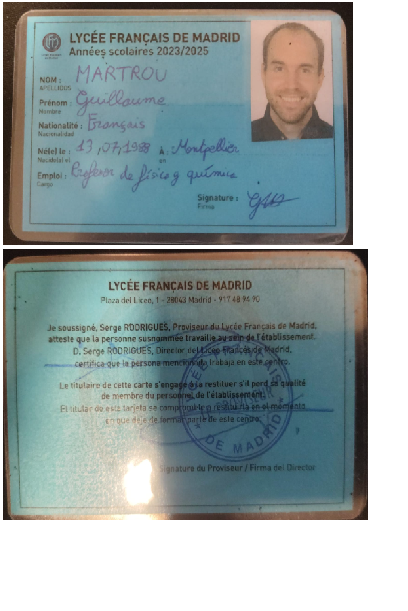 LYCÉE FRANÇAIS DE MADRID
Années scolaires 2023/2025
NOM : MARTROU
APELLIDOS
Prénom : Guillaume
Nombre
Nationalité : Français
Nacionalidad
Né(e) le : 13,07,1988 à : Montpellier
Nacido(a) el en
Emploi : Profesor de física y química
Cargo
Signature :
Firma
LYCÉE FRANÇAIS DE MADRID
Plaza del Liceo, 1 - 28043 Madrid - 917 48 94 90
Je soussigné, Serge RODRIGUES, Proviseur du Lycée Français de Madrid,
atteste que la personne susnommée travaille au sein de l'établissement.
D. Serge RODRIGUES, Director del Liceo Francés de Madrid,
certifica que la persona mencionada trabaja en este centro.
Le titulaire de cette carte s'engage à la restituer s'il perd sa qualité
de membre du personnel de l'établissement.
El titular de esta tarjeta se compromete a restituirla en el momento
en que deje de formar parte de este centro.
DE MADRID
Signature du Proviseur / Firma del Director